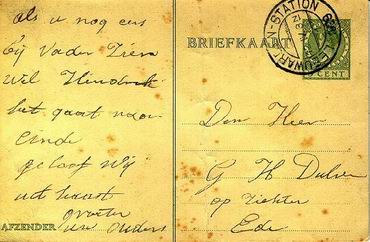 als u nog eens
bij Vader zien
wil Hendrik
het gaat naar
einde
geloof mij
uit haast
groeten
uw Ouders
AFZENDER
BRIEFKAART
LEEUWARDEN-STATION
CENT
Den Heer
G H
op zichter
Ede